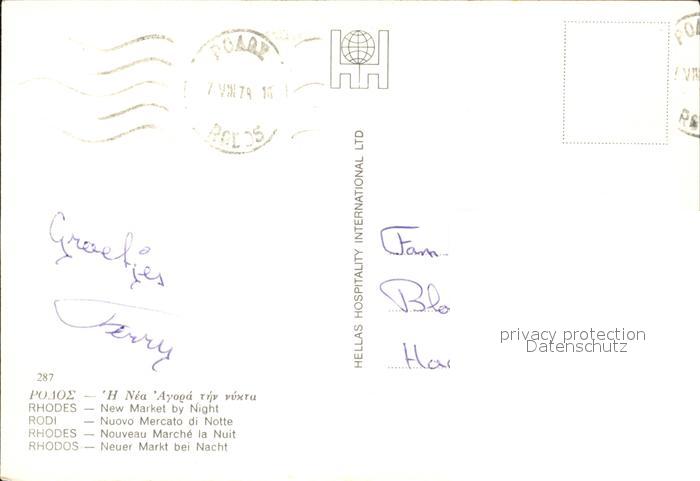 ΡΟΔΟΣ
7 VIII 78
HELLAS HOSPITALITY INTERNATIONAL LTD
Groetjes
Jerry
Fam.
Blo
Har
privacy protection
Datenschutz
287
ΡΟΔΟΣ — Ἡ Νέα Ἀγορά τήν νύκτα
RHODES — New Market by Night
RODI — Nuovo Mercato di Notte
RHODES — Nouveau Marché la Nuit
RHODOS — Neuer Markt bei Nacht